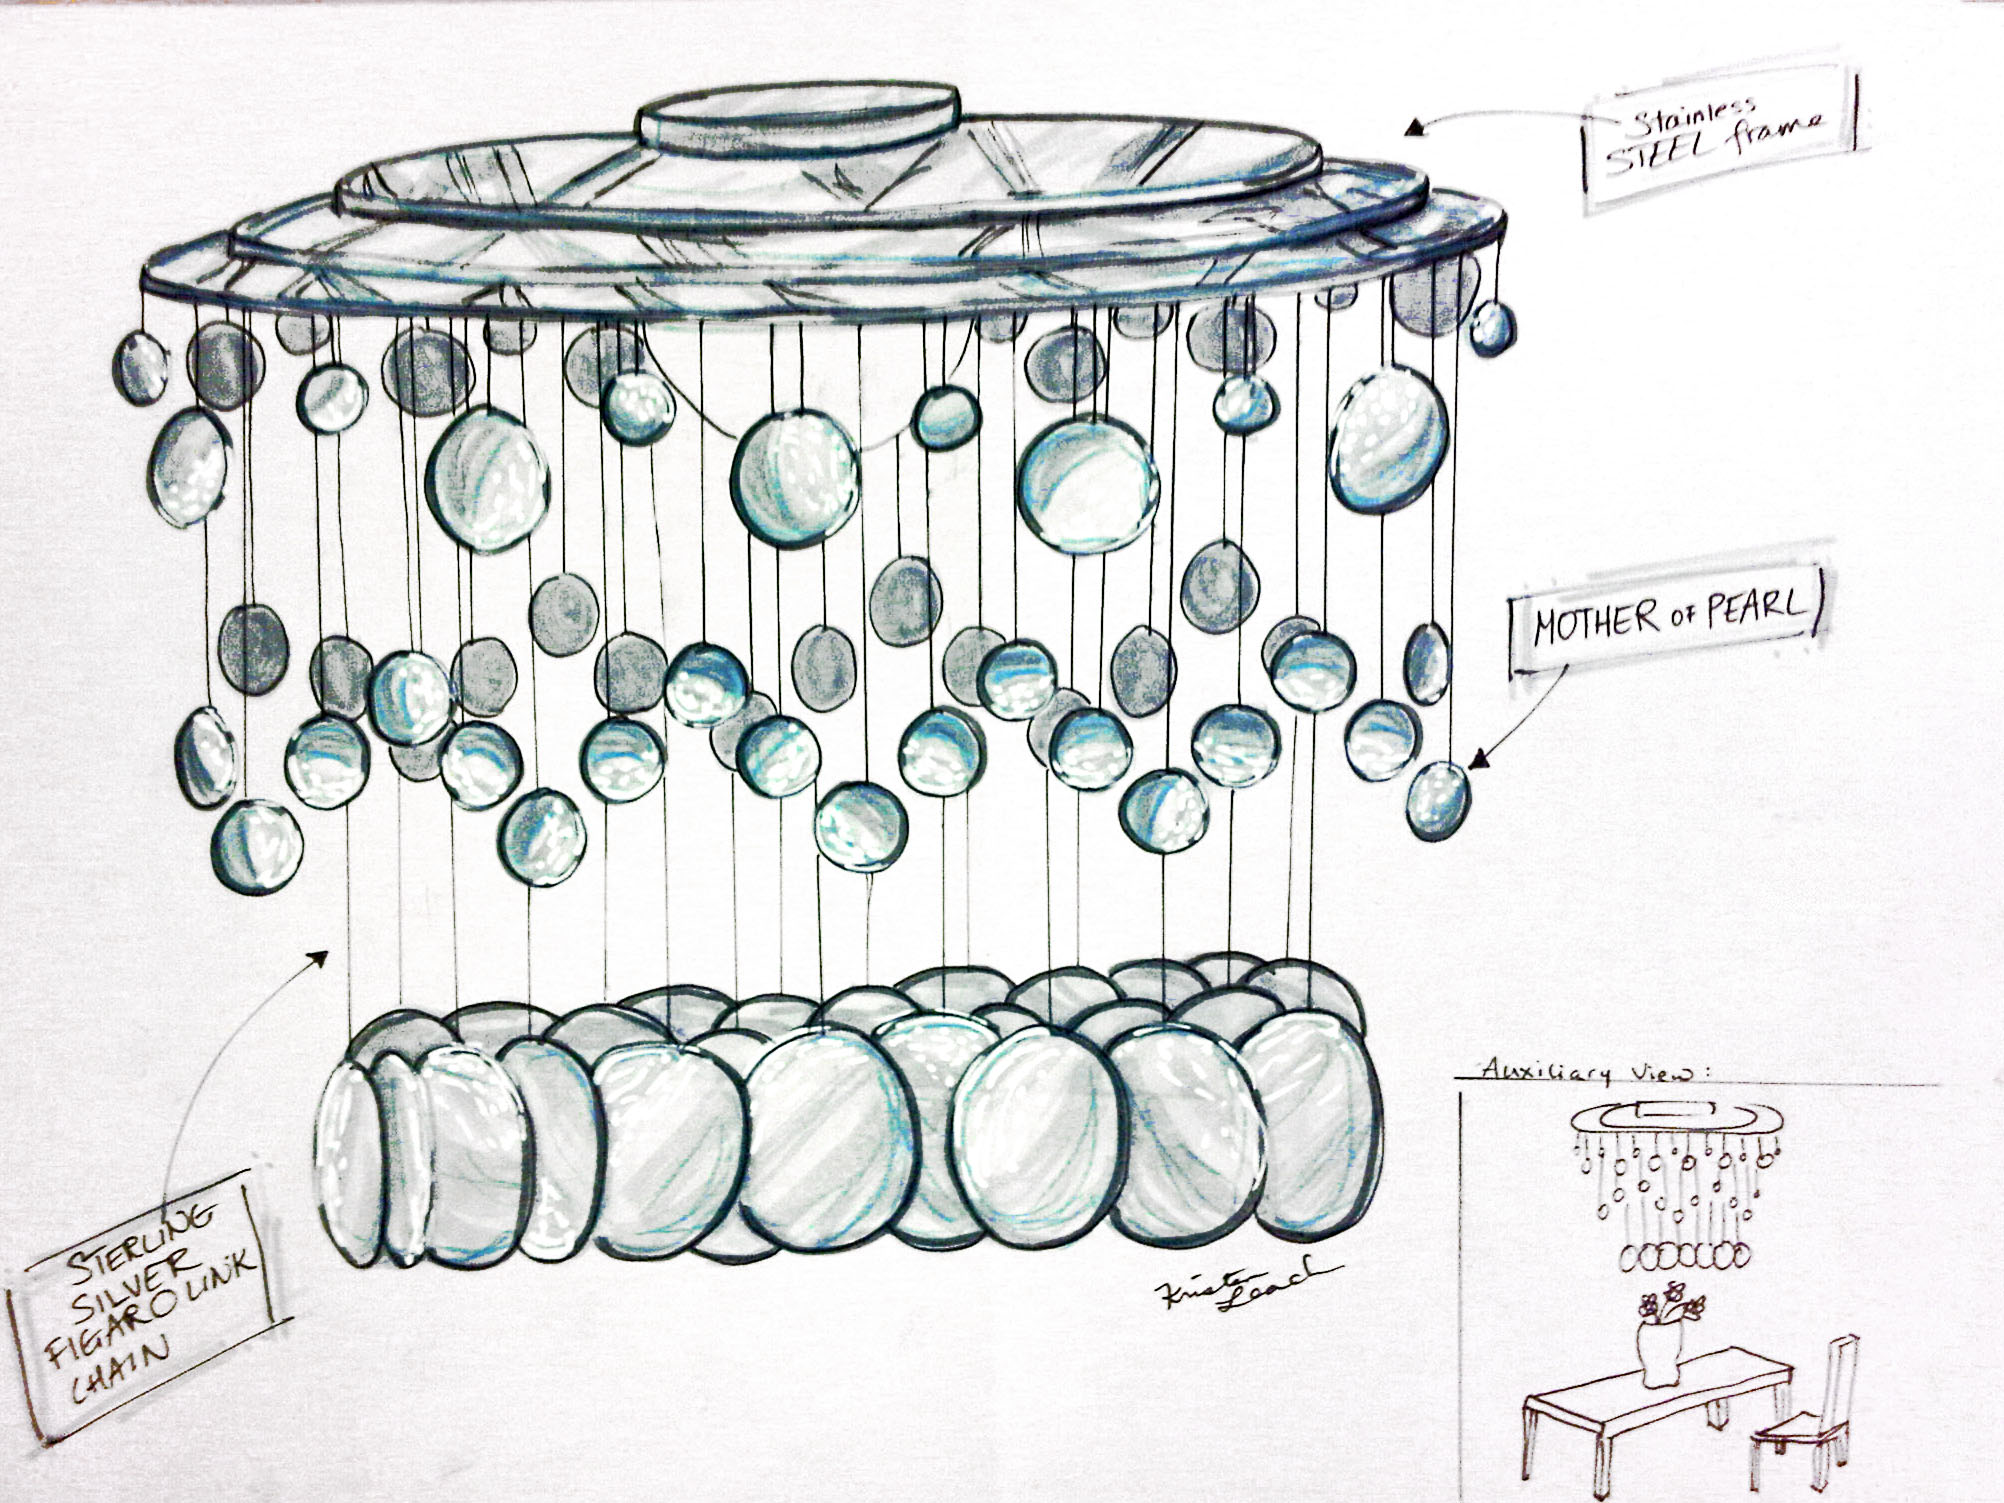 Stainless
STEEL frame
MOTHER OF PEARL
STERLING
SILVER
FIGARO LINK
CHAIN
Kristen
Leach
Auxiliary View: